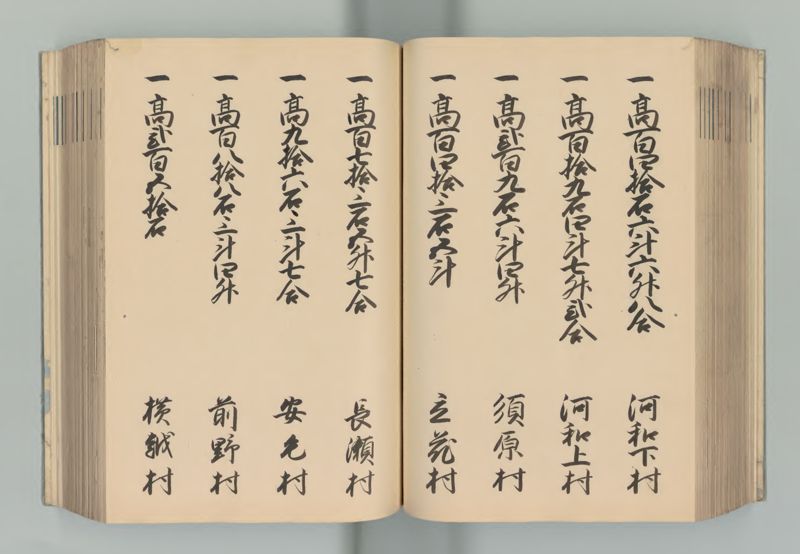 一高百四拾石六斗六升八合 河和下村
一高百拾九石四斗七升弐合 河和上村
一高弐百九石六斗四升 須原村
一高百四拾三石五斗 立花村
一高百七拾三石五升七合 長瀬村
一高九拾六石三斗七合 安毛村
一高百八拾八石三斗四升 前野村
一高弐百五拾石 横越村